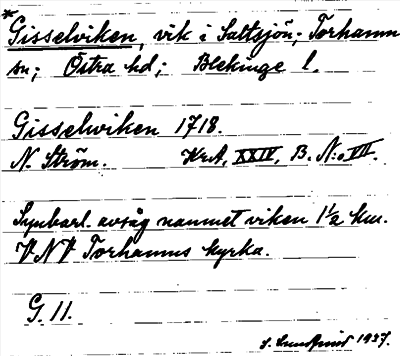 *
Gisselviken, vik i Saltsjön; Torhamn
sn; Östra hd; Blekinge l.
Gisselwiken 1718.
N. Ström. KrA, XXIV, B. N:o VII.
Synbarl. avsåg namnet viken 1 1/2 km.
VNV Torhamns kyrka.
G. 11.
1937.